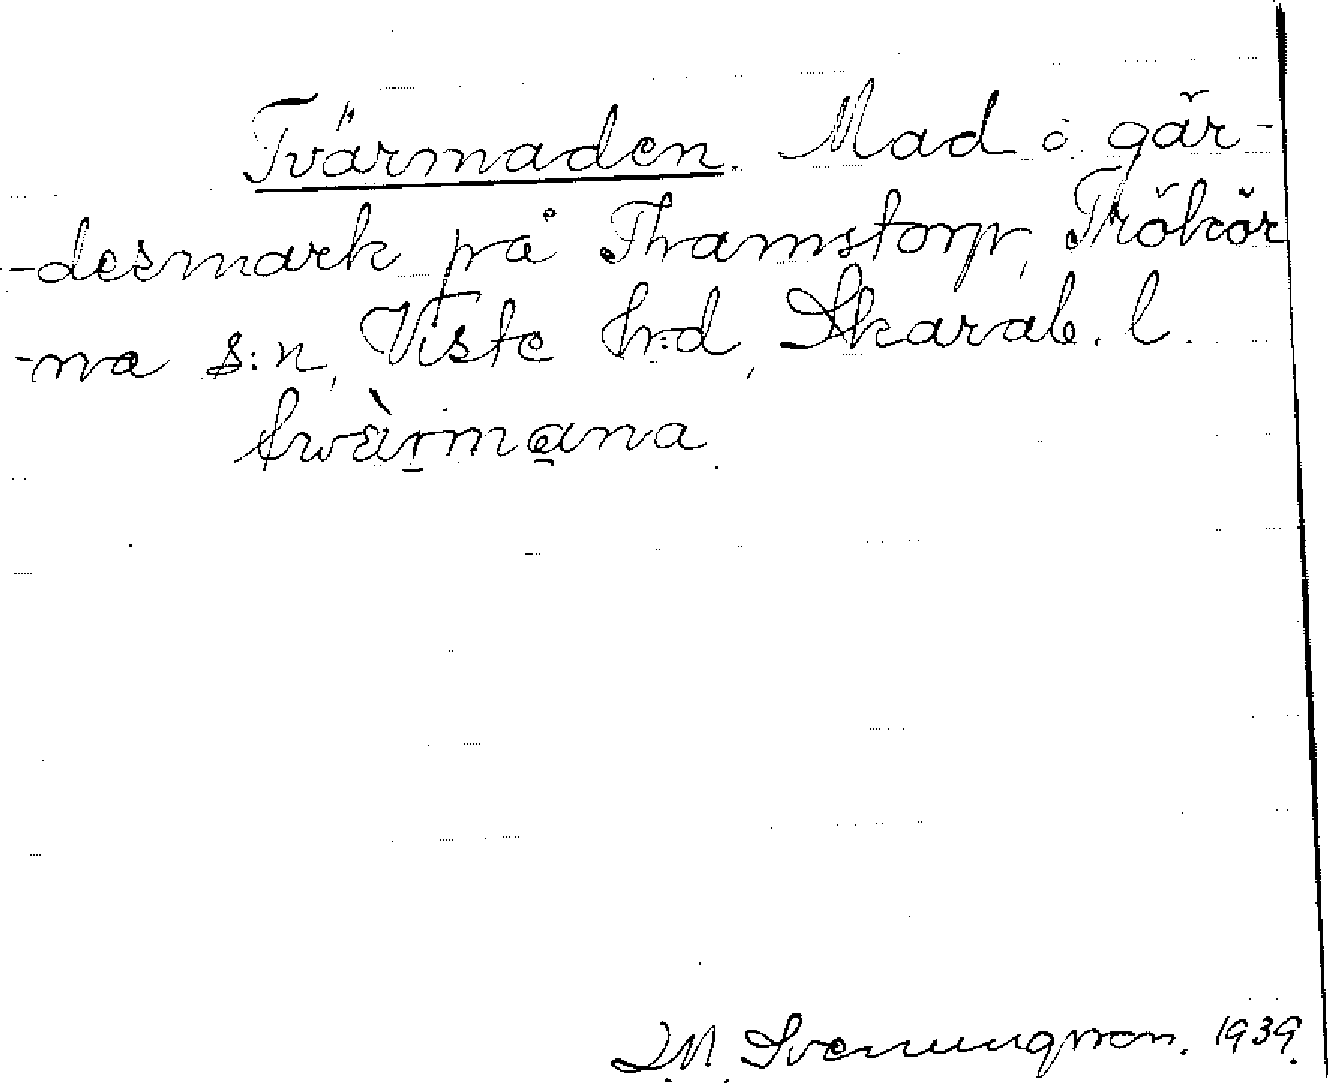 Tvärmaden. Mad o. gär-
-desmark på Thamstorp, Trökör
-na s:n, Viste h:d, Skarab. l.
twàrmana
J.M. Svenungsson. 1939.